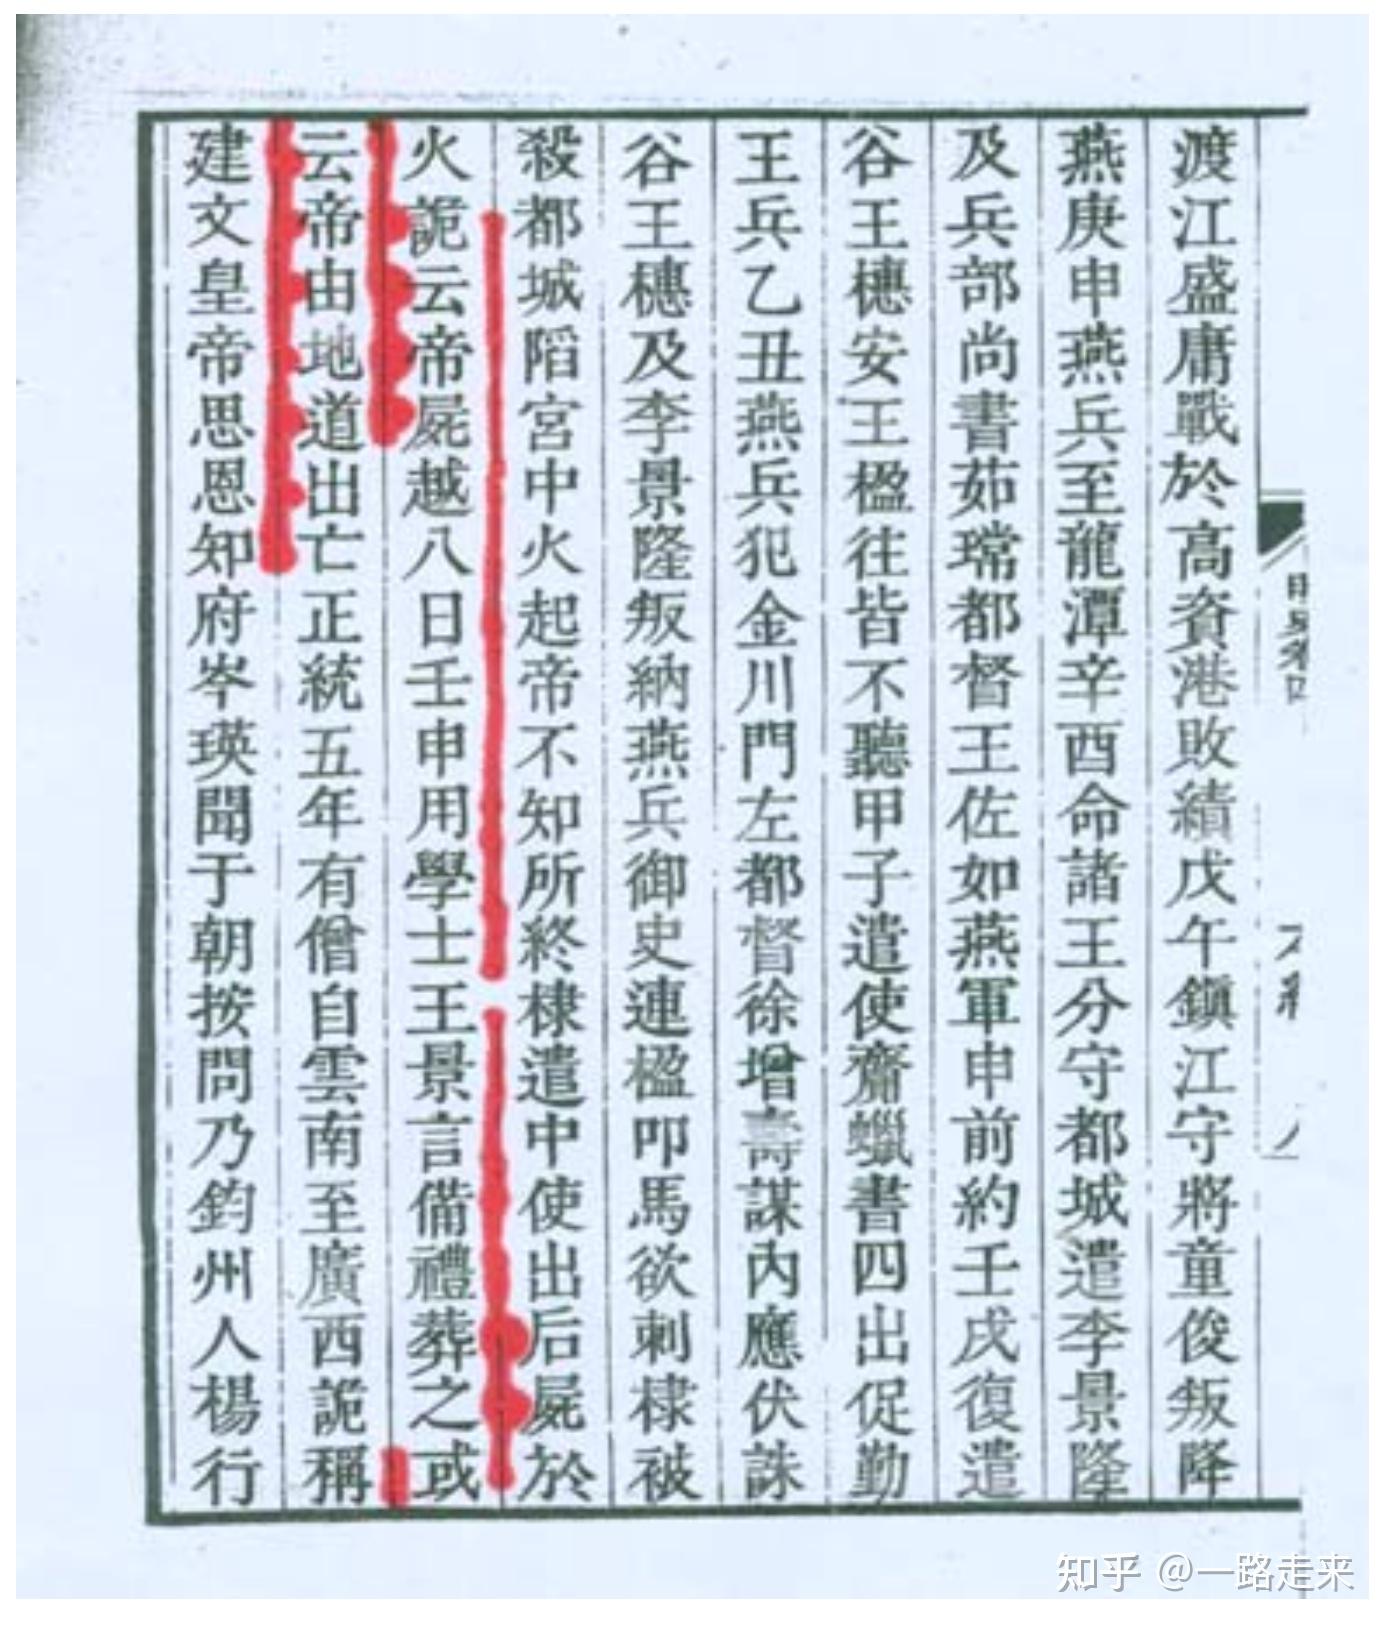 渡江盛庸戰於高資港敗績戊午鎮江守將童俊叛降
燕庚申燕兵至龍潭辛酉命諸王分守都城遣李景隆
及兵部尚書茹瑺都督王佐如燕軍申前約壬戌復遣
谷王橞安王楹往皆不聽甲子遣使齎蠟書四出促勤
王兵乙丑燕兵犯金川門左都督徐增壽謀內應伏誅
谷王橞及李景隆叛納燕兵御史連楹叩馬欲刺棣被
殺都城陷宮中火起帝不知所終棣遣中使出后屍於
火詭云帝屍越八日壬申用學士王景言備禮葬之或
云帝由地道出亡正統五年有僧自雲南至廣西詭稱
建文皇帝思恩知府岑瑛聞于朝按問乃鈞州人楊行
知乎 @一路走来